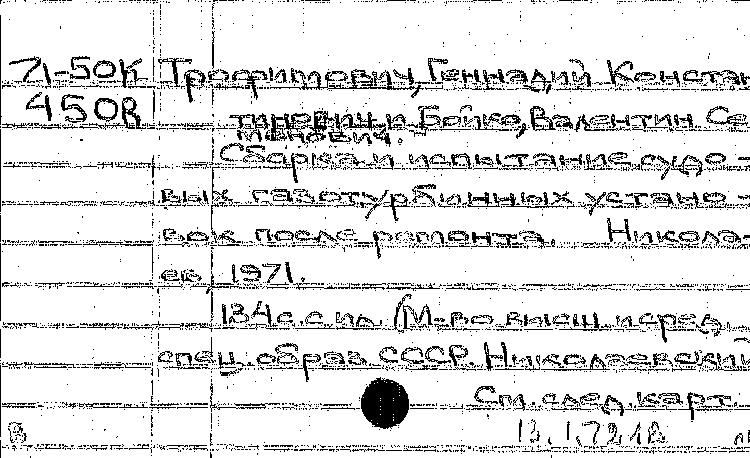 71-50К Трофимович, Геннадий Констан
450в тинович и Бойко, Валентин Се
менович.
Сборка и испытание судо-
вых газотурбинных устано-
вок после ремонта. Никола-
ев, 1971.
134 с. с ил. (М-во высш. и сред.
спец. образ. СССР. Николаевский
См. след. карт.
В 13.1.72